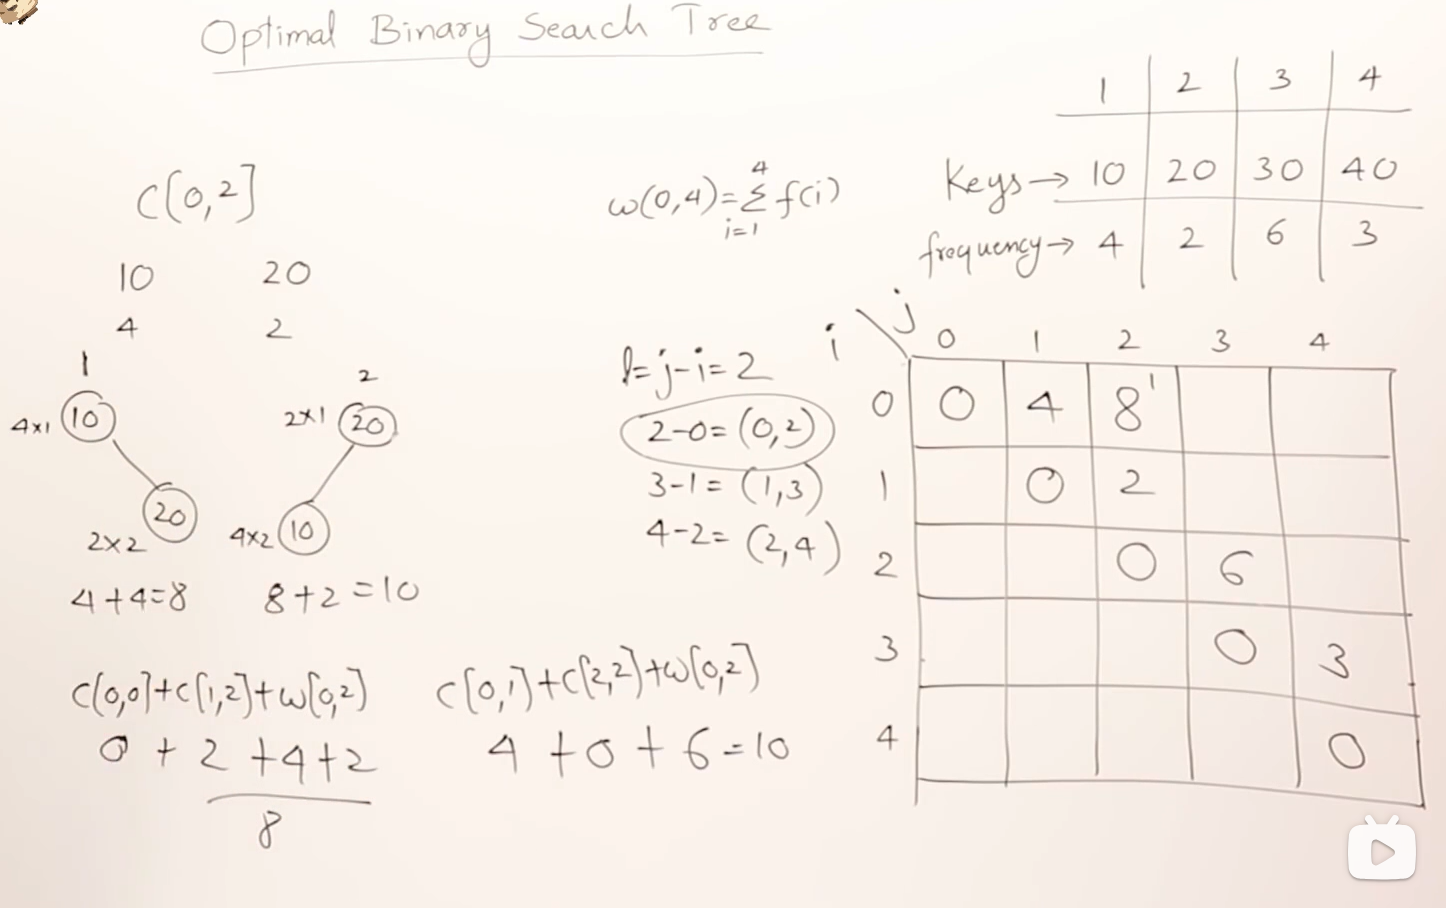 Optimal Binary Search Tree
1 2 3 4
Keys→ 10 20 30 40
frequency→ 4 2 6 3
C[0,2]
10 20
4 2
1
4×1 10
20
2×2
4+4=8
2
2×1 20
4×2 10
8+2=10
C[0,0]+C[1,2]+w[0,2]
0 + 2 +4+2
8
C[0,1]+C[2,2]+w[0,2]
4 +0+ 6=10
w(0,4)=Σf(i)
4
i=1
l=j-i=2
2-0=(0,2)
3-1=(1,3)
4-2=(2,4)
i j
0 1 2 3 4
0 0 4 8¹
1 0 2
2 0 6
3 0 3
4 0